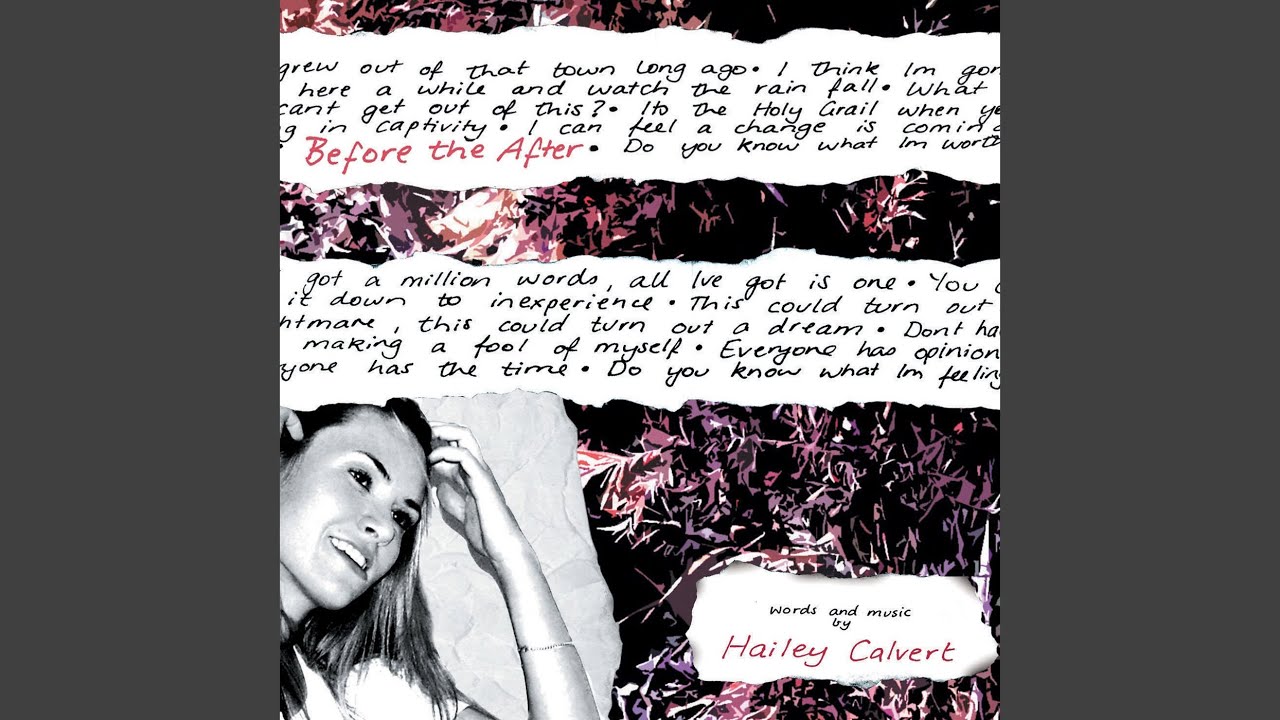 grew out of that town long ago • I think Im gon
here a while and watch the rain fall • What
cant get out of this? • Its the Holy Grail when ye
g in captivity • I can feel a change is coming
• Before the After • Do you know what Im worth
got a million words, all Ive got is one • You c
it down to inexperience • This could turn out
htmare, this could turn out a dream • Dont ha
making a fool of myself • Everyone has opinion
ryone has the time • Do you know what Im feeling
words and music
by
Hailey Calvert